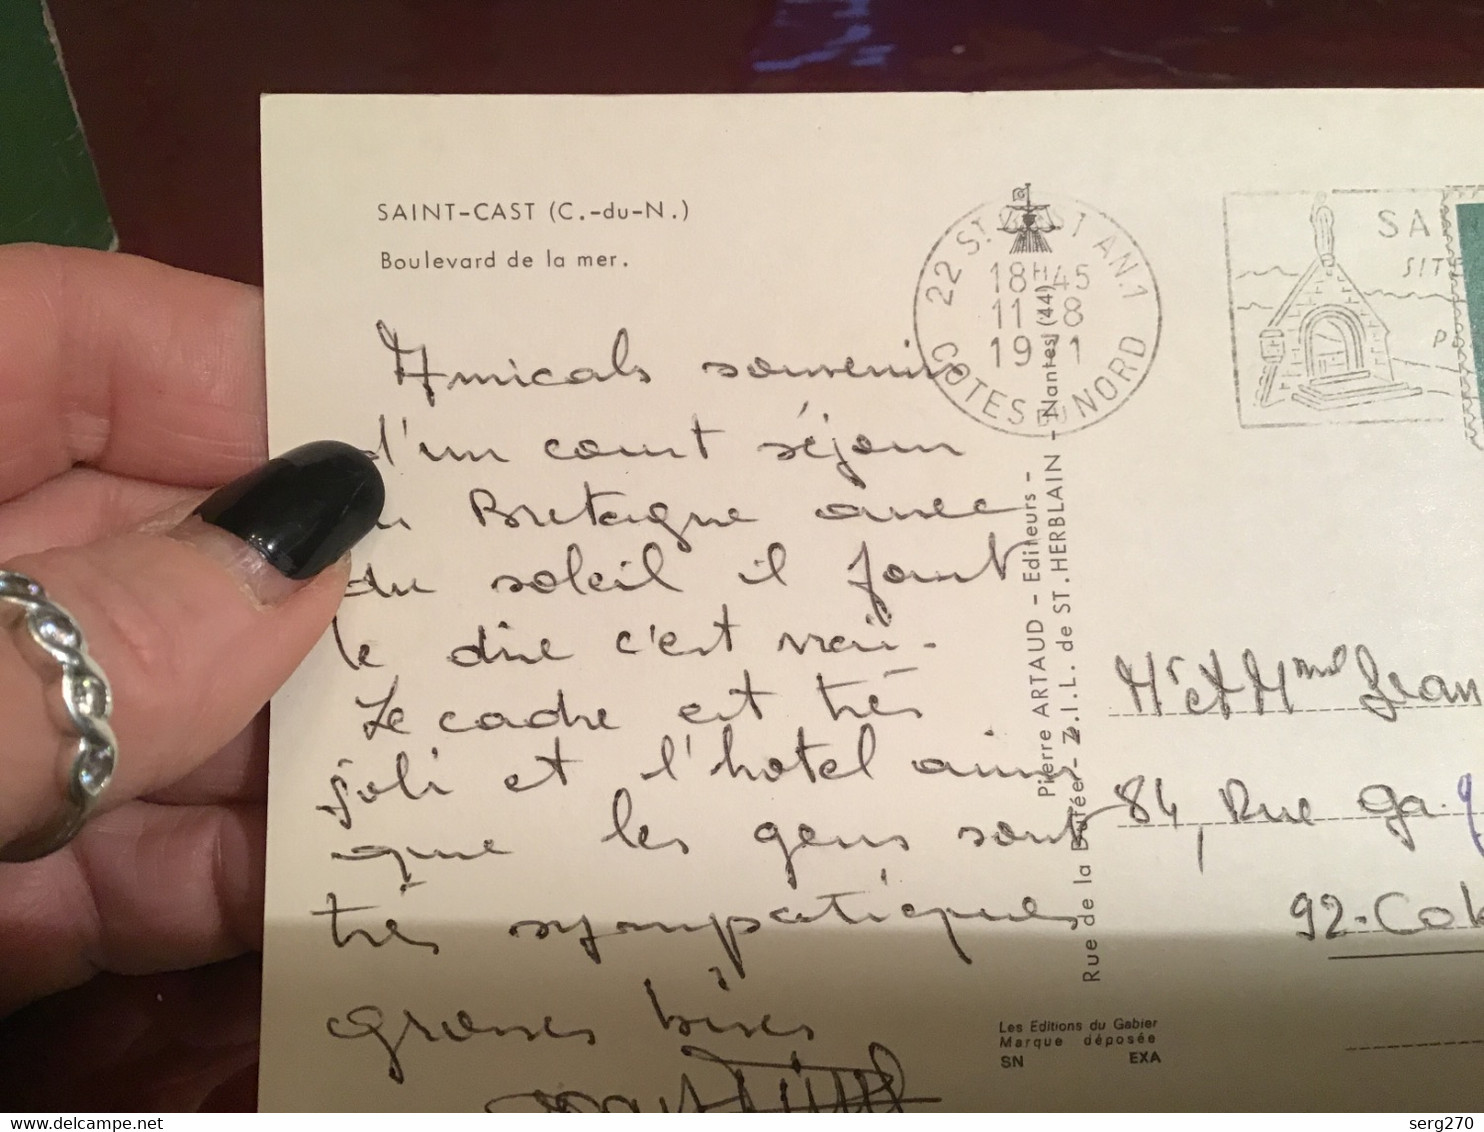 SAINT-CAST (C.-du-N.)
Boulevard de la mer.
Amicals souvenirs
d'un court séjour
Bretagne avec
du soleil il faut
le dire c'est vrai.
Le cadre est très
joli et l'hotel ainsi
que les gens sont
très sympatiques
grosses bises
22 ST. AN.1
18H45
11-8
19 1
COTES DU NORD
SA
SIT
P
Pierre ARTAUD - Editeurs -
Rue de la - Z.I.L. de ST. HERBLAIN - Nantes (44)
Mr et Mme Jean
84, Rue Ga
92-Co
Les Editions du Gabier
Marque déposée
SN EXA
delcampe.net
serg270